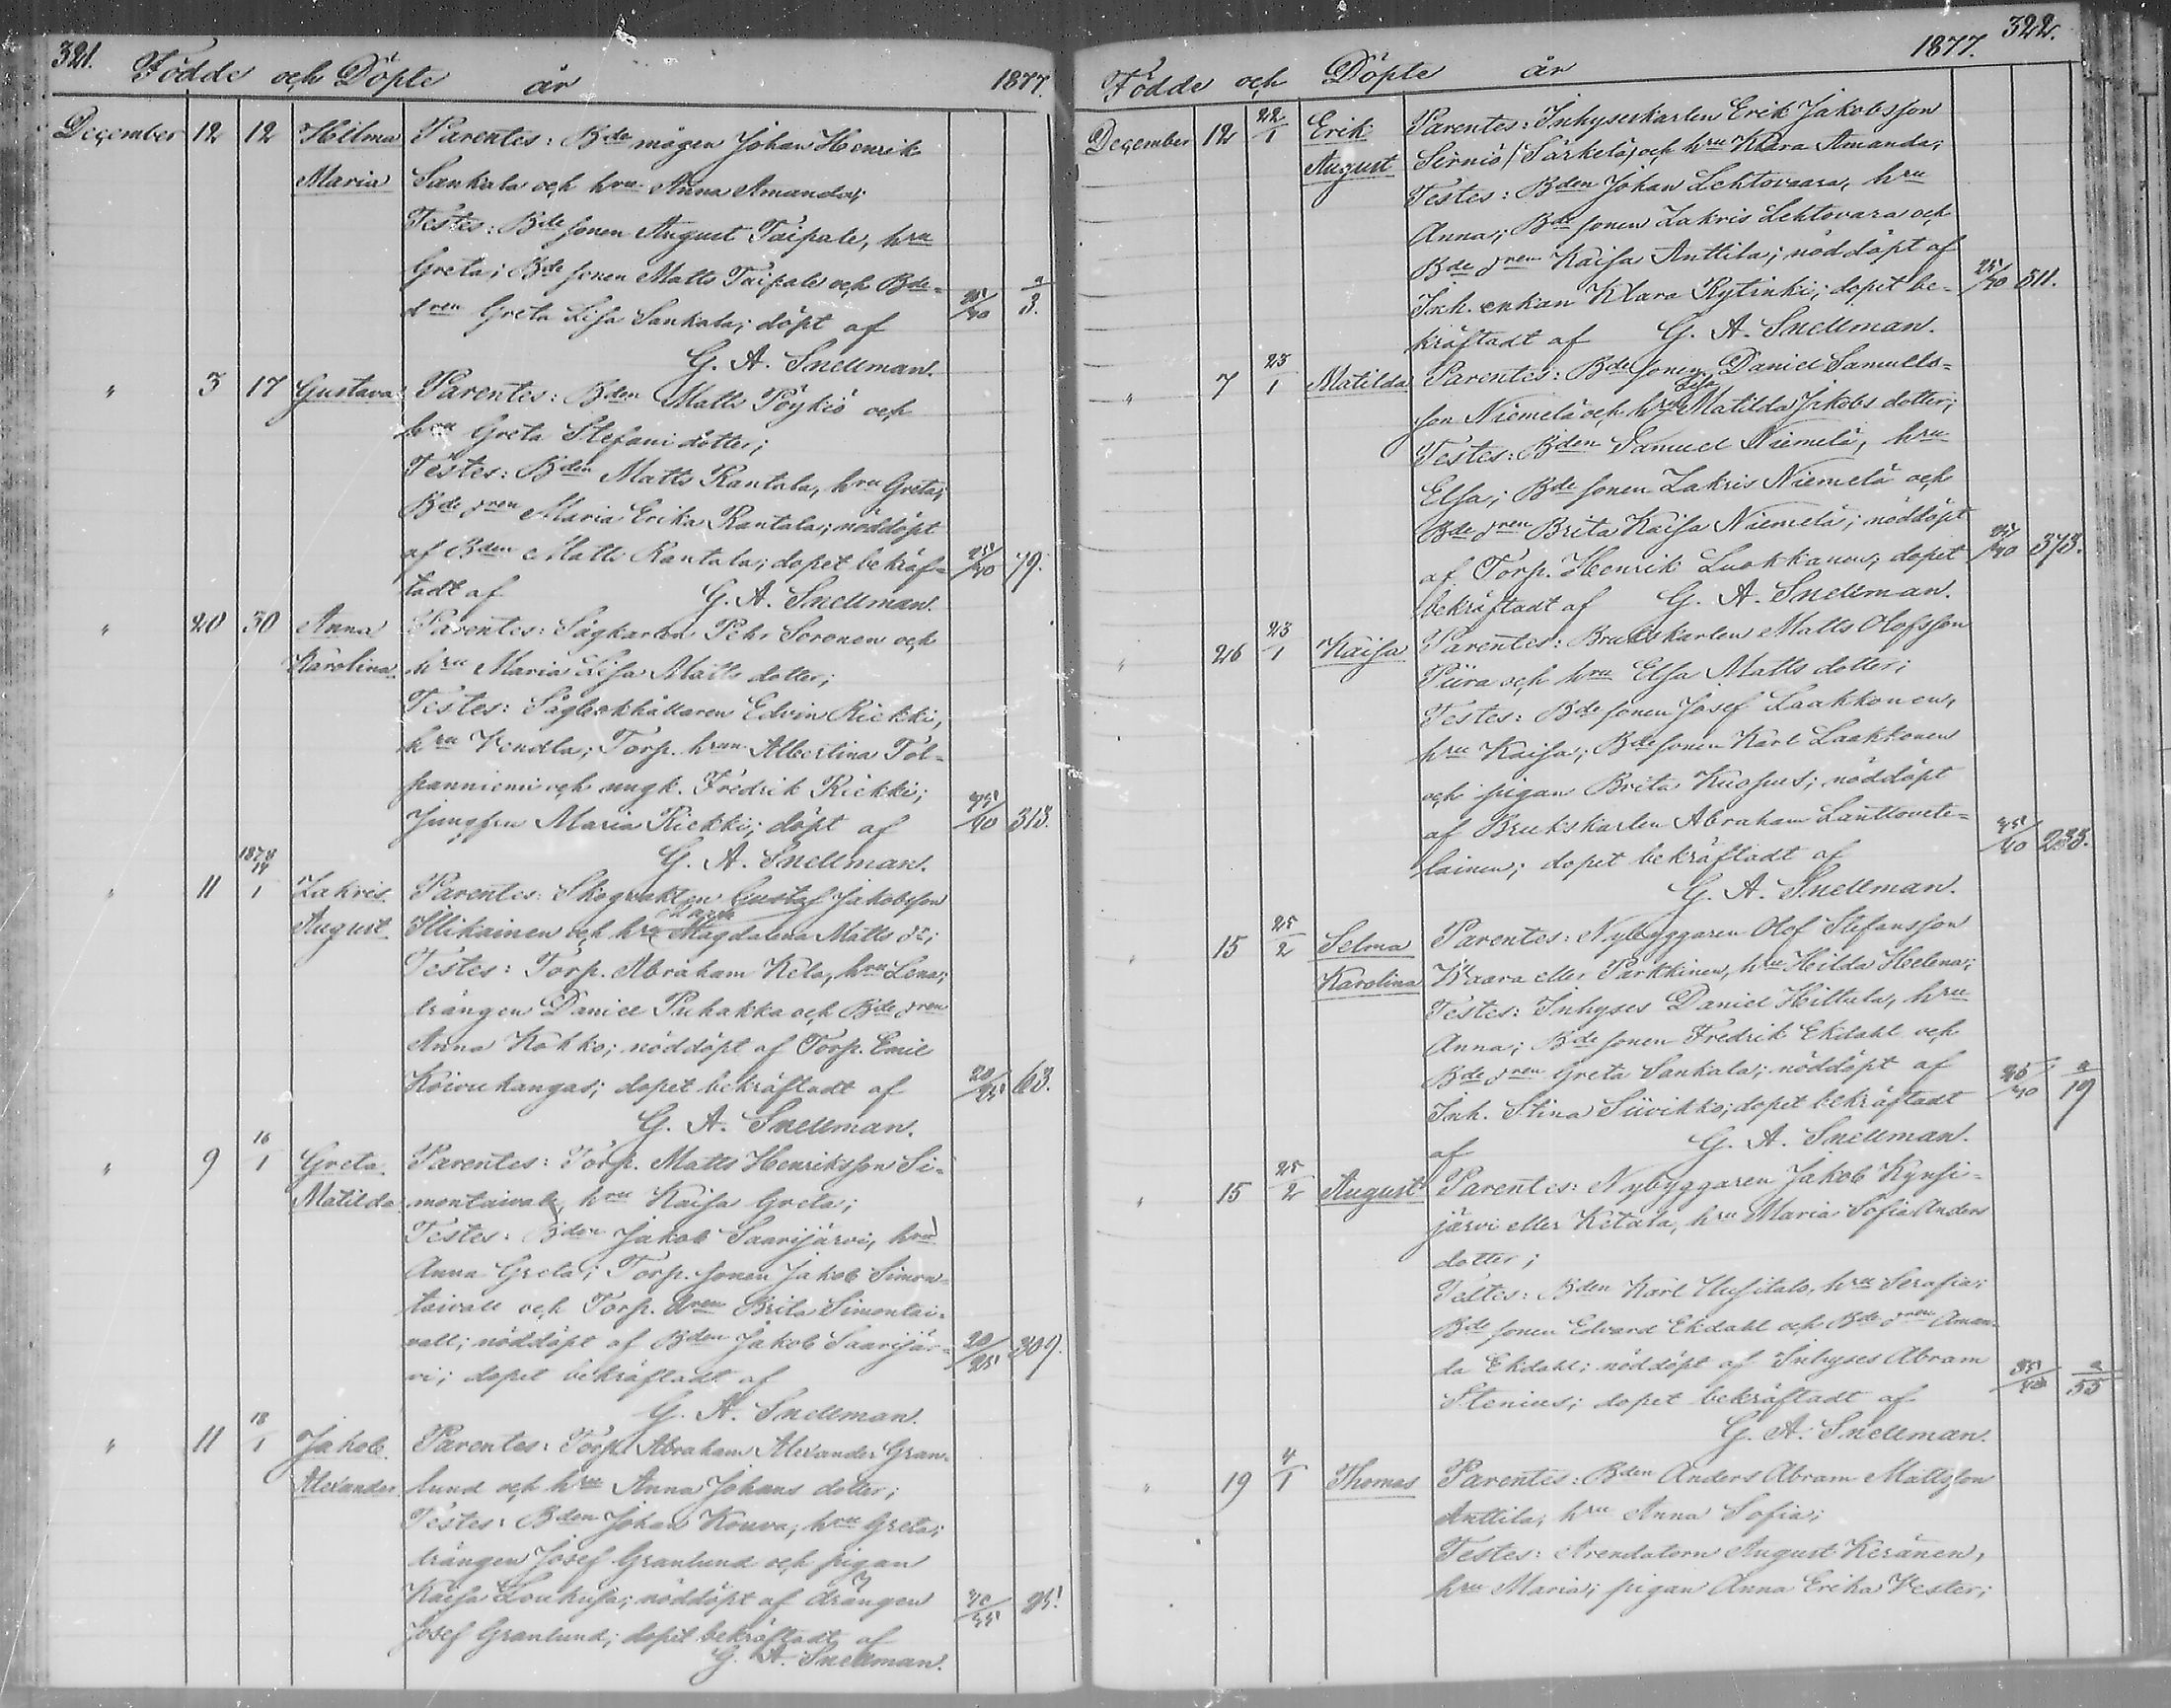 321.
Födde och Döpte år 1877.
December 12 12 Hilma Parentes: Bde mågen Johan Henrik
Maria Sankala och hru Anna Amanda;
Testes: Bde sonen August Taipale, hru
Greta; Bde sonen Matts Taipale och Bde-
dren Greta Lisa Sankala; döpt af 25/40 a/3.
G. A. Snellman.
" 3 17 Gustava Parentes: Bden Matts Pöykiö och
hru Greta Stefani dotter;
Testes: Bden Matts Rantala, hru Greta;
Bde dren Maria Erika Rantala; nöddöpt
af Bden Matts Rantala; dopet bekräf- 25/40 79.
tadt af G. A. Snellman.
" 20 30 Anna Parentes: Sågkarlen Pehr Soronen och
Karolina. hru Maria Lisa Matts dotter;
Testes: Sågbokhållaren Edvin Rickki,
hru Vendla; Torp. hrun Albertina Tol-
panniemi och ungk. Fredrik Rickki;
Jungfru Maria Rickki; döpt af 35/40 313.
G. A. Snellman.
1878
" 11 14/1 Zakris Parentes: Skogvakten Gustaf Jakobsson
August Illikainen och hru Magdalena Matts dr;
Testes: Torp. Abraham Kela, hru Lena;
drängen Daniel Puhakka och Bde dren
Anna Kokko; nöddöpt af Torp. Emil
Koivukangas; dopet bekräftadt af 20/25 63.
G. A. Snellman.
" 9 16/1 Greta Parentes: Torp. Matts Henriksson Si-
Matilda montaivale, hru Kaisa Greta;
Testes: Bden Jakob Saarijärvi, hru
Anna Greta; Torp. sonen Jakob Simon-
taivall och Torp. dren Brita Simontai-
vall; nöddöpt af Bden Jakob Saarijär- 20/25 309.
vi; dopet bekräftadt af
G. A. Snellman.
" 11 18/1 Jakob Parentes: Torp. Abraham Alexander Gran-
Alexander lund och hru Anna Johans dotter;
Testes: Bden Johan Kouva, hru Greta;
drängen Josef Granlund och pigan
Kaisa Loukusa; nöddöpt af drängen 25.
Josef Granlund; dopet bekräftadt af
G. A. Snellman.
322.
Födde och Döpte år 1877.
December 12 22/1 Erik Parentes: Inhyseskarlen Erik Jakobsson
August Sirniö (Särkelä) och hru Klara Amanda;
Testes: Bden Johan Lehtovaara, hru
Anna; Bde sonen Zakris Lehtovara och
Bde dren Kaisa Anttila; nöddöpt af
Inh. enkan Klara Rytinki; dopet be- 25/40 511.
kräftadt af G. A. Snellman.
" 7 23/1 Matilda Parentes: Bde sonen Daniel Samuels-
Lisa
son Niemelä och hru Matilda Jakobs dotter;
Testes: Bden Samuel Niemelä, hru
Elsa; Bde sonen Zakris Niemelä och
Bde dren Brita Kaisa Niemelä; nöddöpt
af Torp. Henrik Luokkanen; dopet 373.
bekräftadt af G. A. Snellman.
" 26 23/1 Kaisa Parentes: Brukskarlen Matts Olofsson
Piira och hru Elsa Matts dotter;
Testes: Bde sonen Josef Laakkonen,
hru Kaisa; Bde sonen Karl Laakkonen
och pigan Brita Kuopus; nöddöpt
af Brukskarlen Abraham Lauttovete-
lainen; dopet bekräftadt af 35/40 233.
G. A. Snellman.
" 15 25/2 Selma Parentes: Nybyggaren Olof Stefansson
Karolina Waara eller Parkkinen, hru Hilda Helena;
Testes: Inhyses Daniel Hiltula, hru
Anna; Bde sonen Fredrik Ekdahl och
Bde dren Greta Sankala; nöddöpt af
Inh. Stina Siivikko; dopet bekräftadt 25/40 a/19
af G. A. Snellman.
" 15 25/2 August Parentes: Nybyggaren Jakob Kynsi-
järvi eller Ketola, hru Maria Sofia Anders
dotter;
Testes: Bden Karl Uusitalo, hru Serafia;
Bde sonen Edvard Ekdahl och Bde dren Aman-
da Ekdahl; nöddöpt af Inhyses Abram
Stenius; dopet bekräftadt af a/55
G. A. Snellman.
" 19 4/1 Thomas Parentes: Bden Anders Abram Mattsson
Anttila, hru Anna Sofia;
Testes: Arendatorn August Keränen,
hru Maria; pigan Anna Erika Vester;